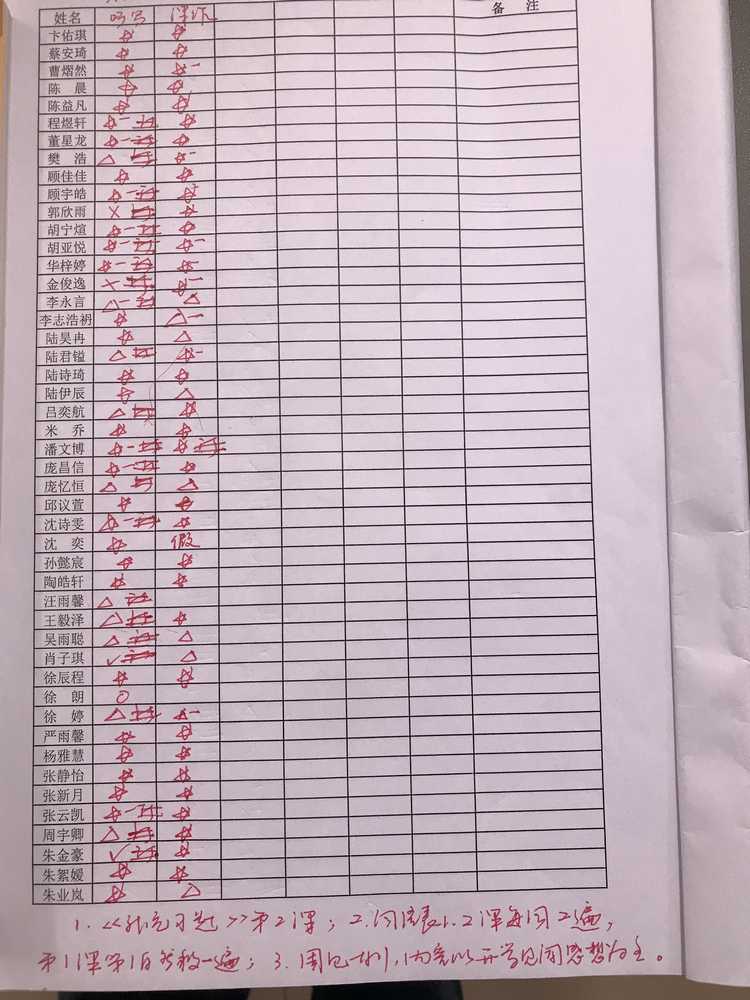 姓名 听写 课作 备 注
卞佑琪
蔡安琦
曹熠然
陈 晨
陈益凡
程煜轩
董星龙
樊 浩
顾佳佳
顾宇皓
郭欣雨
胡宁煊
胡亚悦
华梓婷
金俊逸
李永言
李志浩祤
陆昊冉
陆君镒
陆诗琦
陆伊辰
吕奕航
米 乔
潘文博
庞昌信
庞忆恒
邱议萱
沈诗雯
沈 奕 假
孙懿宸
陶皓轩
汪雨馨
王毅泽
吴雨聪
肖子琪
徐辰程
徐 朗
徐 婷
严雨馨
杨雅慧
张静怡
张新月
张云凯
周宇卿
朱金豪
朱絮媛
朱业岚
1.《补充习题》第2课；2.词语表1.2课每词2遍，
第1课第1自然段一遍；3.周记一则，内容以开学见闻感想为主。